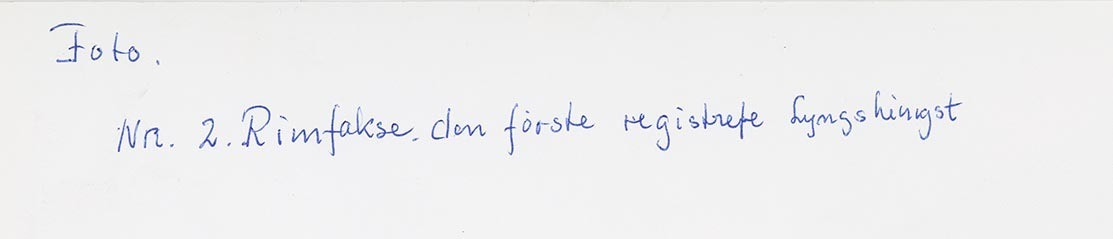 Foto.
Nr. 2. Rimfakse. den förste registrete Lyngshingst